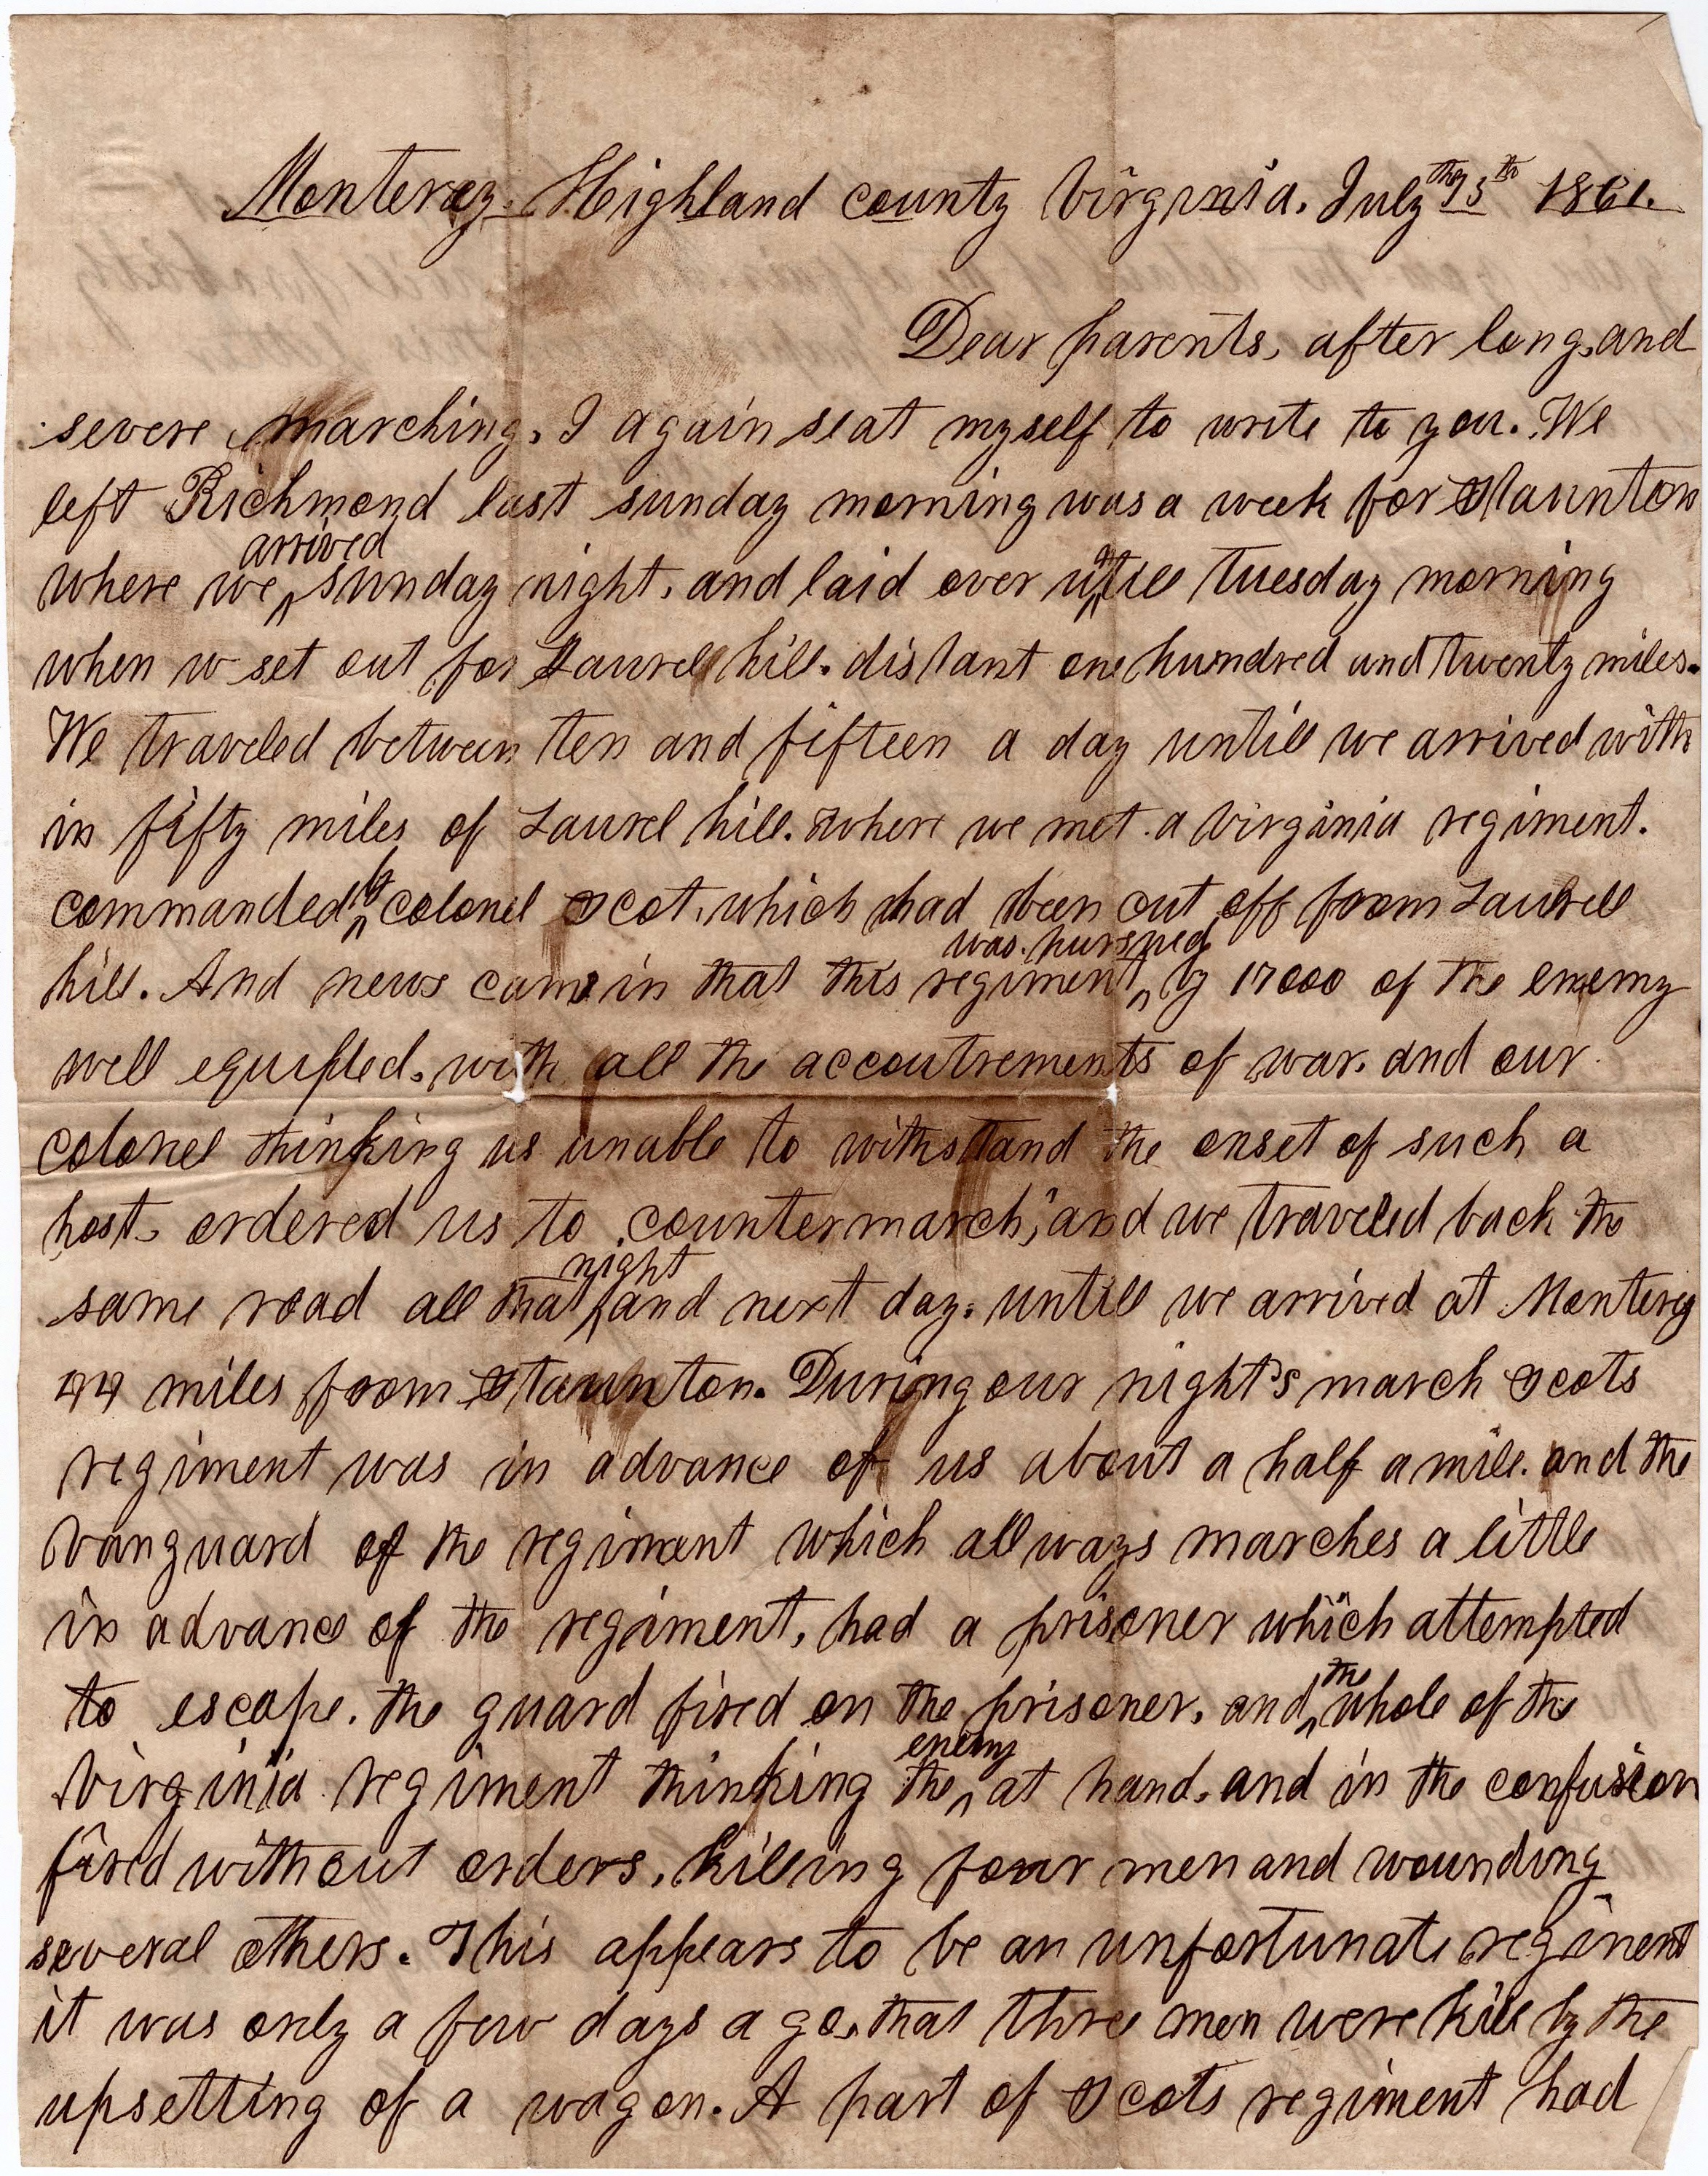 Monterey. Highland county Virginia. July the 15th 1861.
Dear parents, after long, and
severe marching, I again seat myself to write to you. We
left Richmond last sunday morning was a week for Staunton
where we arrived sunday night, and laid over untill tuesday morning
when w set out for Laurel hill. distant one hundred and twenty miles.
We traveled between ten and fifteen a day untill we arrived with
in fifty miles of Laurel hill. Where we met a Virginia regiment.
commanded by colonel Scot, which had been cut off from Laurell
hill. And news came in that this regiment was pursued by 17000 of the enemy
well equipted. with all the accoutrements of war. and our
colonel thinking us unable to withstand the onset of such a
host, ordered us to "countermarch," and we traveled back the
same road all that night and next day. untill we arrived at Monterey
44 miles from Staunton. During our night's march Scots
regiment was in advance of us about a half a mile. and the
vanguard of the regiment which allways marches a little
in advance of the regiment, had a prisoner which attempted
to escape. the guard fired on the prisoner, and the whole of the
Virginia regiment thinking the enemy at hand, and in the confusion
fired without orders, killing four men and wounding
several others. This appears to be an unfortunate regiment
it was only a few days ago, that three men were kill by the
upsetting of a wagon. A part of Scots regiment had